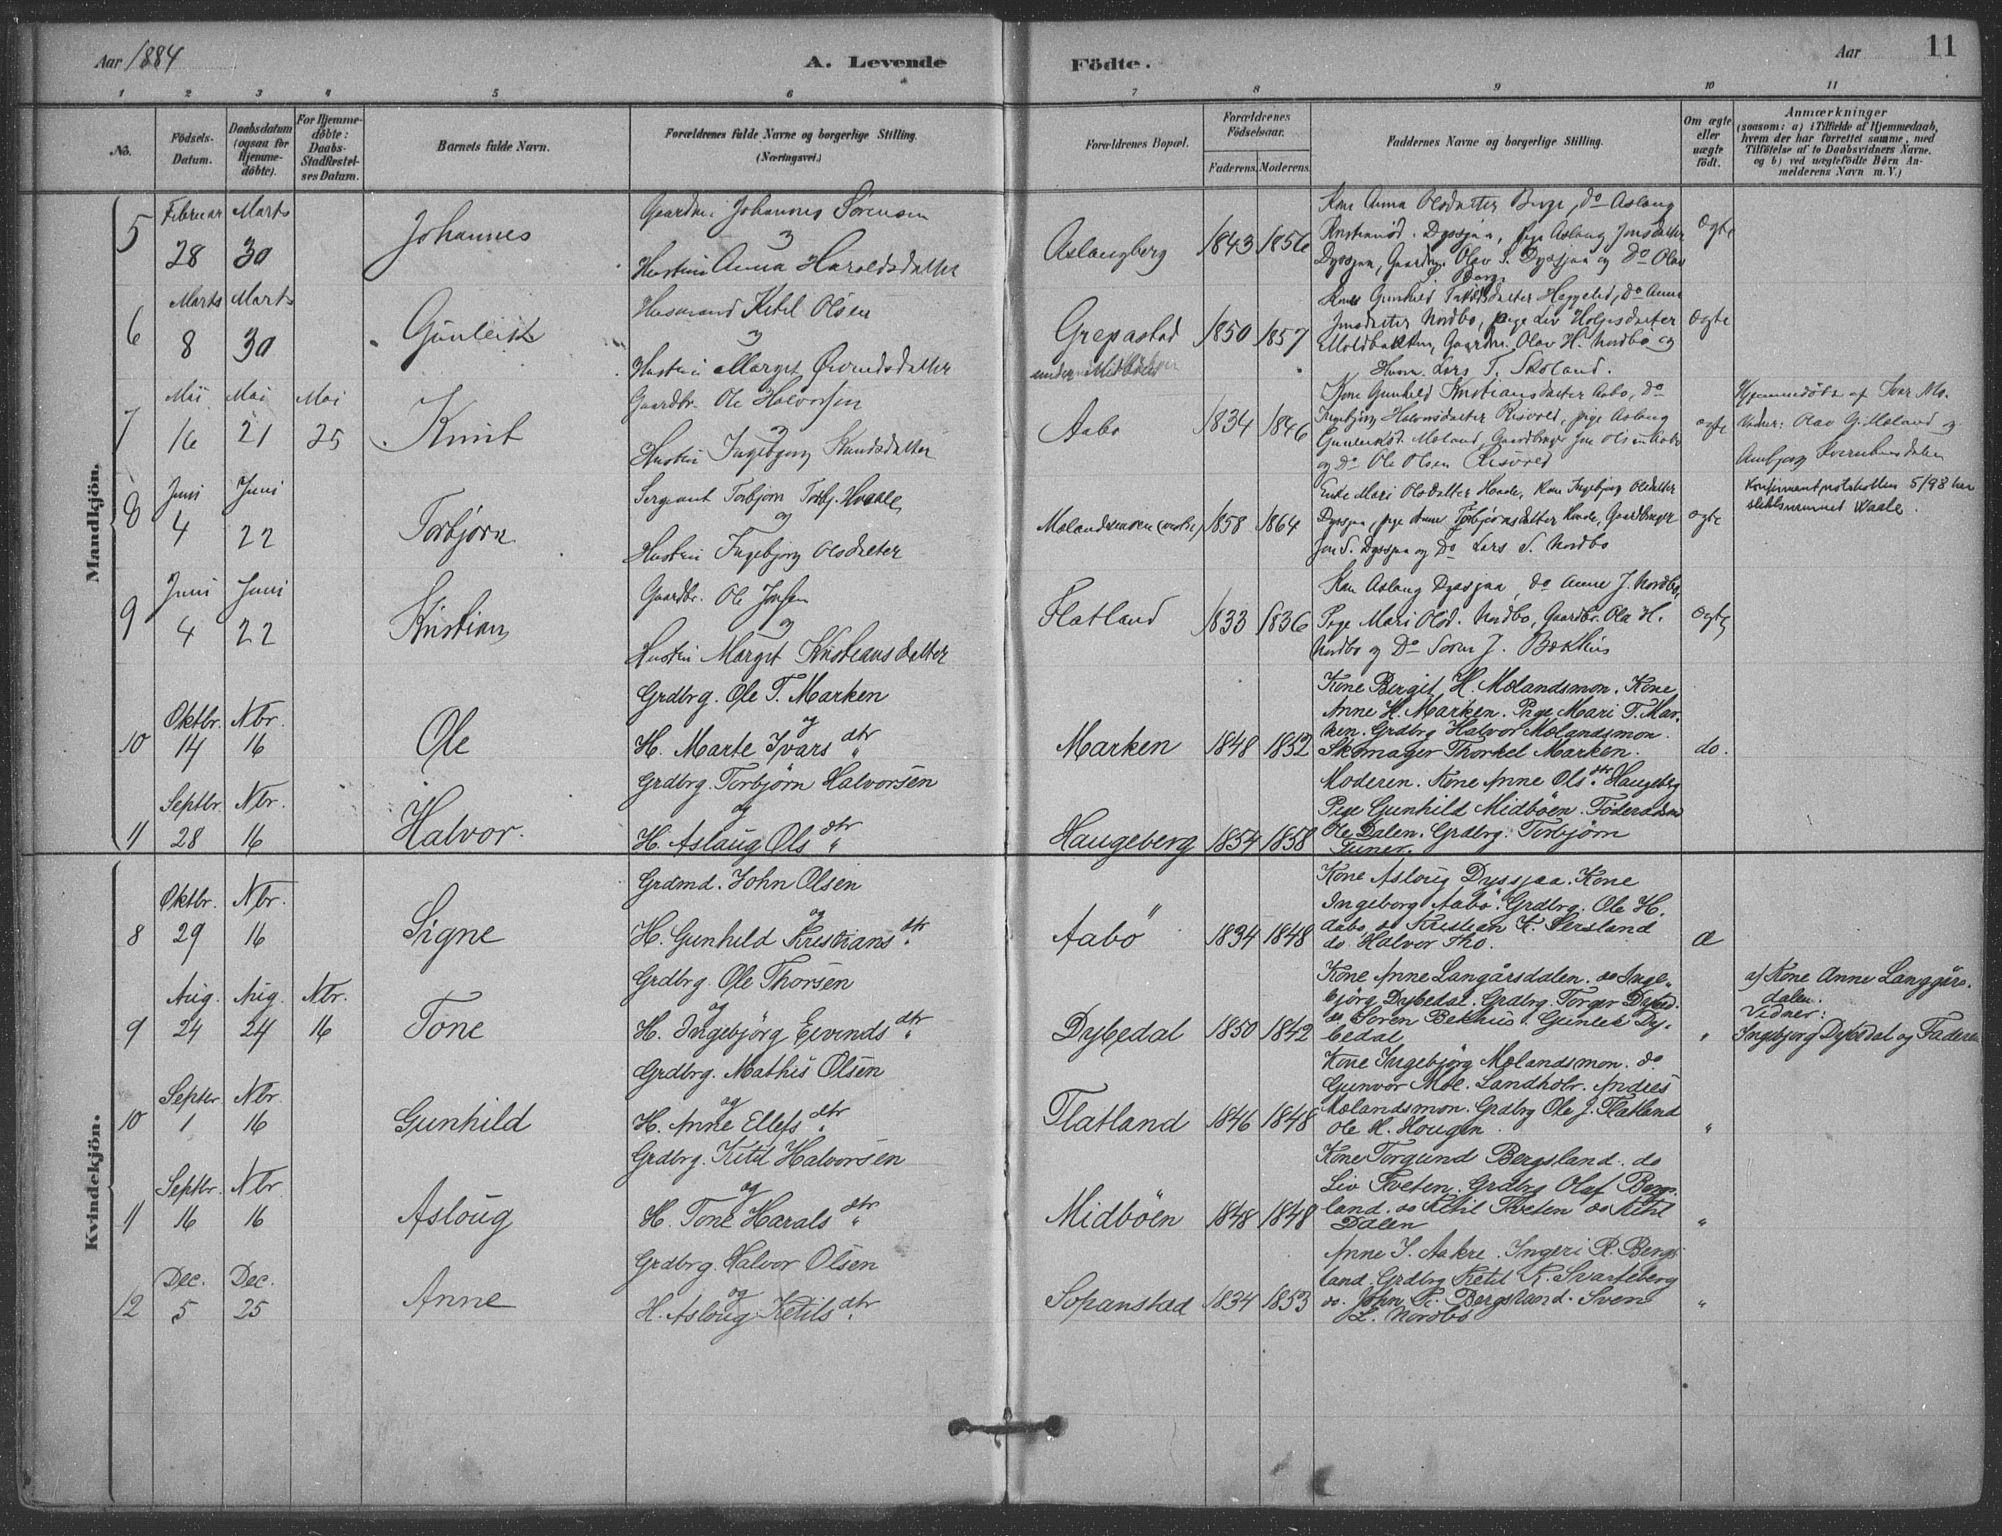 Aar 1884
A. Levende Födte.
Aar 11
1 2 3 4 5 6 7 8 9 10 11
No.
Födsels-
Datum.
Daabsdatum
(ogsaa for
Hjemme-
döbte).
For Hjemme-
döbte:
Daabs-
Stadfæstel-
ses Datum.
Barnets fulde Navn.
Forældrenes fulde Navne og borgerlige Stilling.
(Næringsvei.)
Forældrenes Bopæl.
Forældrenes
Födselsaar.
Faderens. Moderens.
Faddernes Navne og borgerlige Stilling.
Om ægte
eller
uægte
födt.
Anmærkninger
(saasom: a) i Tilfælde af Hjemmedaab,
hvem der har forrettet samme, med
Tilföielse af to Daabsvidners Navne.
og b) ved uægtefödte Börn An-
melderens Navn m. V.)
Mandkjön.
5
Februar 28
Marts 30
Johannes
Gaardm. Johannes Sörensen
og
Hustru Anna Haroldsdatter
Aslangberg
1843 1856
Kone Anna Olsdatter Berge, Do Aslaug
Kristiansd. Dyssjaa, pige Aslaug Jonsdatter
Dyssjaa, Gaardm. Olav S. Dyssjaa og Do Olav
Berge
Ægte
6
Marts 8
Marts 30
Gunleik
Husmand Ketil Olsen
og
Hustru Marget Øvindsdatter
Grepastad
under Midböen
1850 1857
Kone Gunhild Heggelid, Do Anne
Jonsdatter Nordbo, pige Liv Holjesdatter
Moldbakken, Gaardm. Olav H. Nordbo og
Husm. Lars T. Skoland.
Ægte
7
Mai 16
Mai 21
Mai 25
Knut
Gaardbr. Ole Halvorsen
og
Hustru Ingebjorg Knudsdatter
Aabo
1834 1846
Kone Gunhild Kristiansdatter Aabo, Do
Ingebjorg Halvorsdatter Risvold, pige Aslaug
Gunleiksd. Moland, Gaardbruger Jon Olsen Aabo
og Do Ole Olsen Risvold
ægte
Hjemmedöbt af Ivar Mo.
Vidner: Olav G. Moland og
Anbjorg
8
Juni 4
Juni 22
Torbjörn
Sergeant Torbjorn Torbj. Hvaale
og
Hustru Ingebjorg Olsdatter
Molandsmoen
1858 1864
Enke Mari Olsdatter Hvale, Kone Ingebjorg Olsdatter
Dyssjaa, pige Anne Torbjörnsdatter Hvale, Gaardbruger
Jon S. Dyssjaa og Do Lars S. Nordbo
ægte
Konfirmantprotokollen 5/98 har
slektsnavnet Waale.
9
Juni 4
Juni 22
Kristian
Gaardbr. Ole Jonsen
og
Hustru Marget Kristiansdatter
Flatland
1833 1836
Kone Aslaug Dyssjaa, Do Anne J. Nordbo,
Pige Mari Olsd. Nordbo, Gaardbr. Ola H.
Nordbo og Do Soren J. Bækhus
Ægte
10
Oktbr. 14
Nbr. 16
Ole
Grdbrg. Ole T. Marken
og
H. Marte Ivars dtr
Marken
1848 1852
Kone Bergit H. Molandsmon. Kone
Anne H. Marken. Pige Mari T. Mar-
ken. Grdbrg Halvor Molandsmon.
Skomager Thorkel Marken.
do.
11
Septbr. 28
Nbr. 16
Halvor.
Grdbrg. Torbjörn Halvorsen
og
H. Aslaug Ols dtr
Haugeberg
1854 1858
Moderen. Kone Anne Ols dtr. Haugeberg
Pige Gunhild Midböen. Föderaadsm
Ole Dalen. Grdbrg. Torbjörn
Tuner.
Kvindekjön.
8
Oktbr. 29
Nbr. 16
Signe
Grdmd. John Olsen
og
H. Gunhild Kristians dtr.
Aabö
1834 1848
Kone Asloug Dyssjaa. Kone
Ingeborg Aabö. Grdbrg. Ole H.
Aabo do Kristian K. Bersland
do. Halvor Tho.
Æ
9
Aug. 24
Aug. 24
Nbr. 16
Tone
Grdbrg. Ole Thorsen
og
H. Ingebjörg Eivinds dtr
Dybedal
1850 1842
Kone Anne Langårsdalen. do Inge-
björg Dybedal. Grdbrg. Torger Dybed.
do Sören Bekhus. Gunlek Dy-
bedal
"
a) Kone Anne Langgårs-
dalen.
Vidner:
Ingebjorg Dybedal og Faderen
10
Septbr. 1
Nbr. 16
Gunhild
Grdbrg. Mathis Olsen
og
H. Anne Ellefs dtr
Flatland
1846 1848
Kone Ingebjörg Molandsmon. do
Gunvor Moe. Landholr. Andres
Molandsmon. Grdbrg Ole J. Flatland
Ole H. Hougen.
"
11
Septbr. 16
Nbr. 16
Asloug
Grdbrg. Ketil Halvorsen
og
H. Tone Harals dtr
Midböen
1848 1848
Kone Torgund Bergsland. do
Liv Tveten. Grdbrg Oluf Bergs-
land. do Ketil Tveten do Ketil
Dalen
"
12
Dec. 5
Dec. 25
Anne
Grdbrg. Halvor Olsen
og
H. Asloug Ketils dtr.
Sopanstad
1834 1853
Anne S. Aakre. Ingeri R. Bergs-
land. Grdbrg Ketil K. Svarteberg
do. John R. Bergsland. Sven
L. Nordbo
"